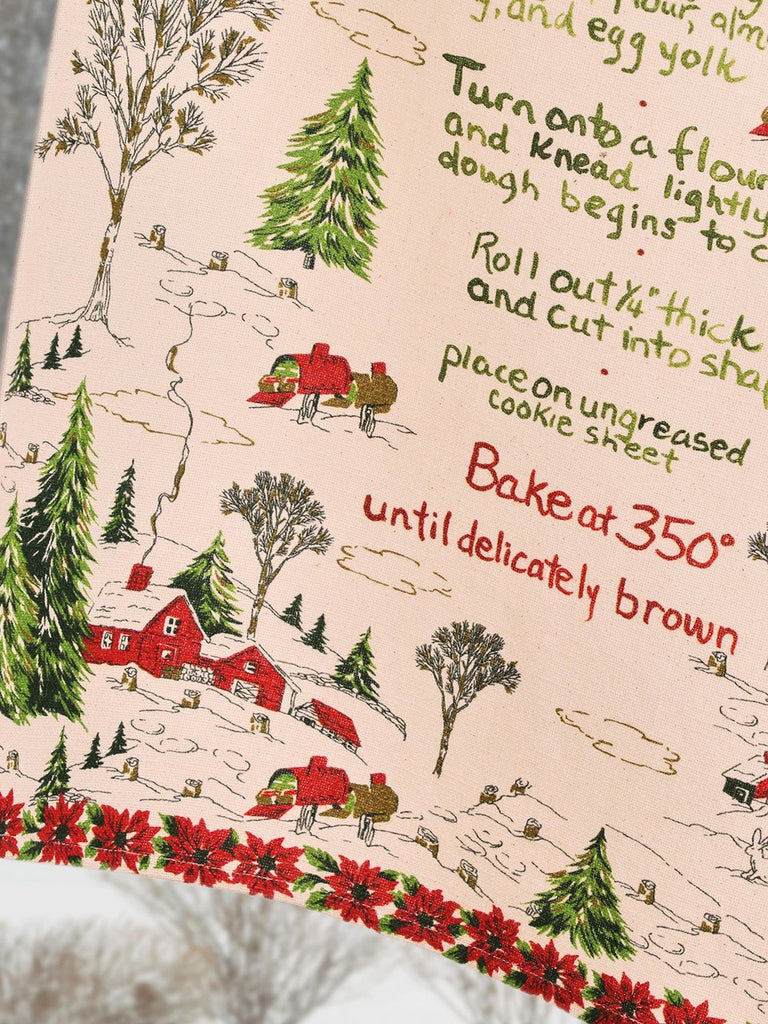 flour, alm
y, and egg yolk
Turn onto a flour
and knead lightly
dough begins to c
Roll out ¼" thick
and cut into sha
place on ungreased
cookie sheet
Bake at 350°
until delicately brown